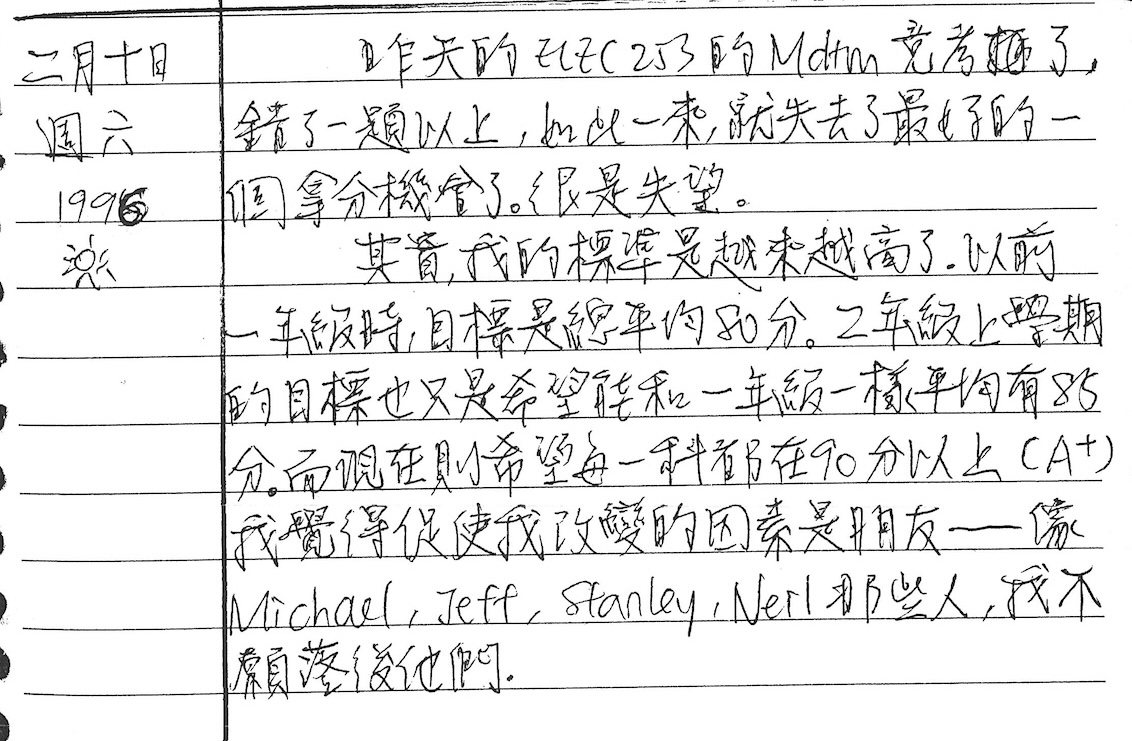 二月十日
週六
1996
昨天的 ELEC 253 的 Mdtm 竟考砸了,
錯了一題以上,如此一來,就失去了最好的一
個拿分機會了。很是失望。
其實,我的標準是越來越高了.以前
一年級時,目標是總平均80分。2年級上學期
的目標也只是希望能和一年級一樣平均有85
分。而現在則希望每一科都在90分以上 (A+)
我覺得促使我改變的因素是朋友——像
Michael, Jeff, Stanley, Neil 那些人,我不
願落後他們.